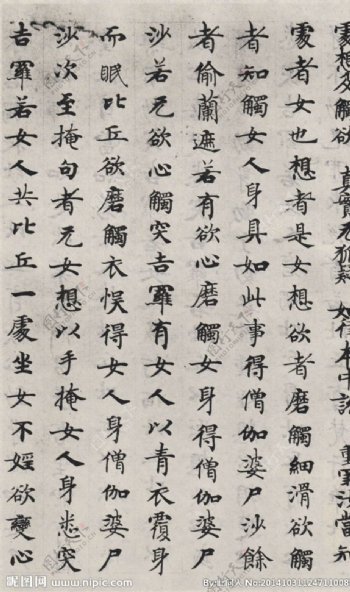 處想及觸欲
處者女也想者是女想欲者磨觸細滑欲觸
者知觸女人身具如此事得僧伽婆尸沙餘
者偷蘭遮若有欲心磨觸女身得僧伽婆尸
沙若无欲心觸突吉羅有女人以青衣覆身
而眠比丘欲磨觸衣悮得女人身僧伽婆尸
沙次至掩句者无女想以手掩女人身悉突
吉羅若女人共比丘一處坐女不婬欲變心
昵图网 www.nipic.com
By:士同人 No:20141031124711008